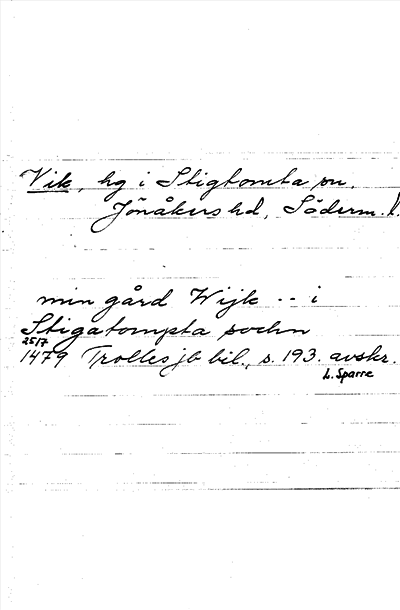 Vik, hg i Stigtomta sn,
Jönåkers hd, Söderm. l.
min gård Wijk -- i
Stigatompta sochn
25/7
1479 Trolles jb bil., s. 193. avskr.
L. Sparre